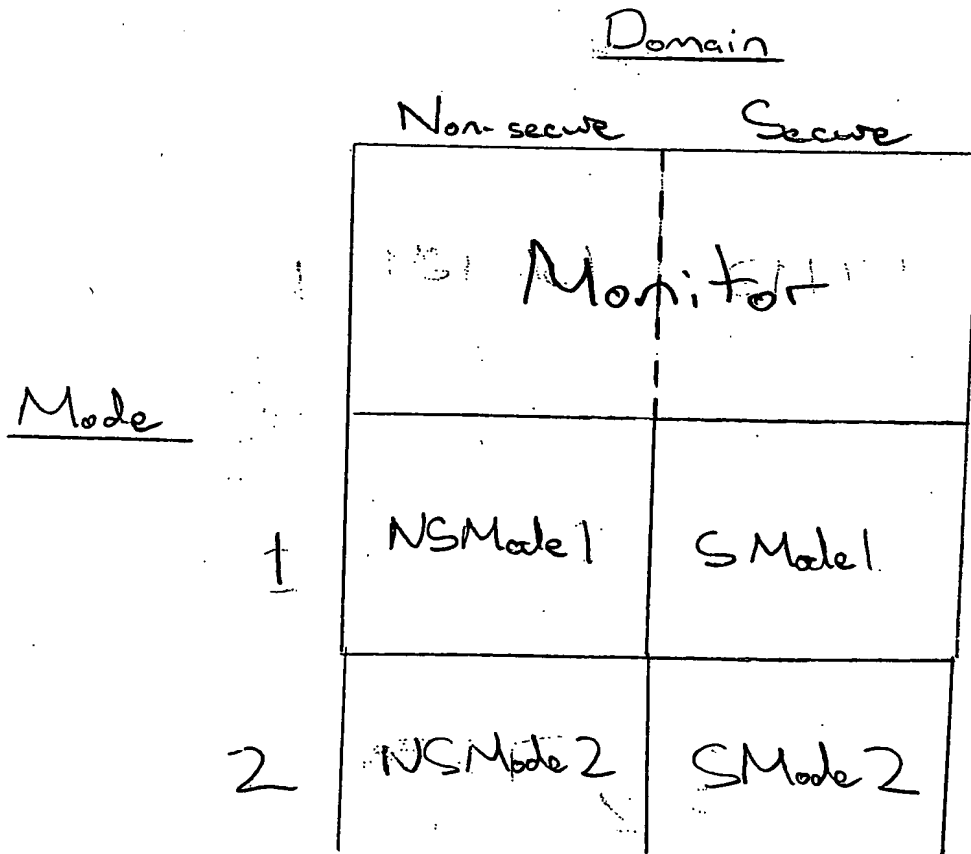 Domain
Non-secure Secure
Monitor
Mode
1 NSMode1 SMode1
2 NSMode2 SMode2